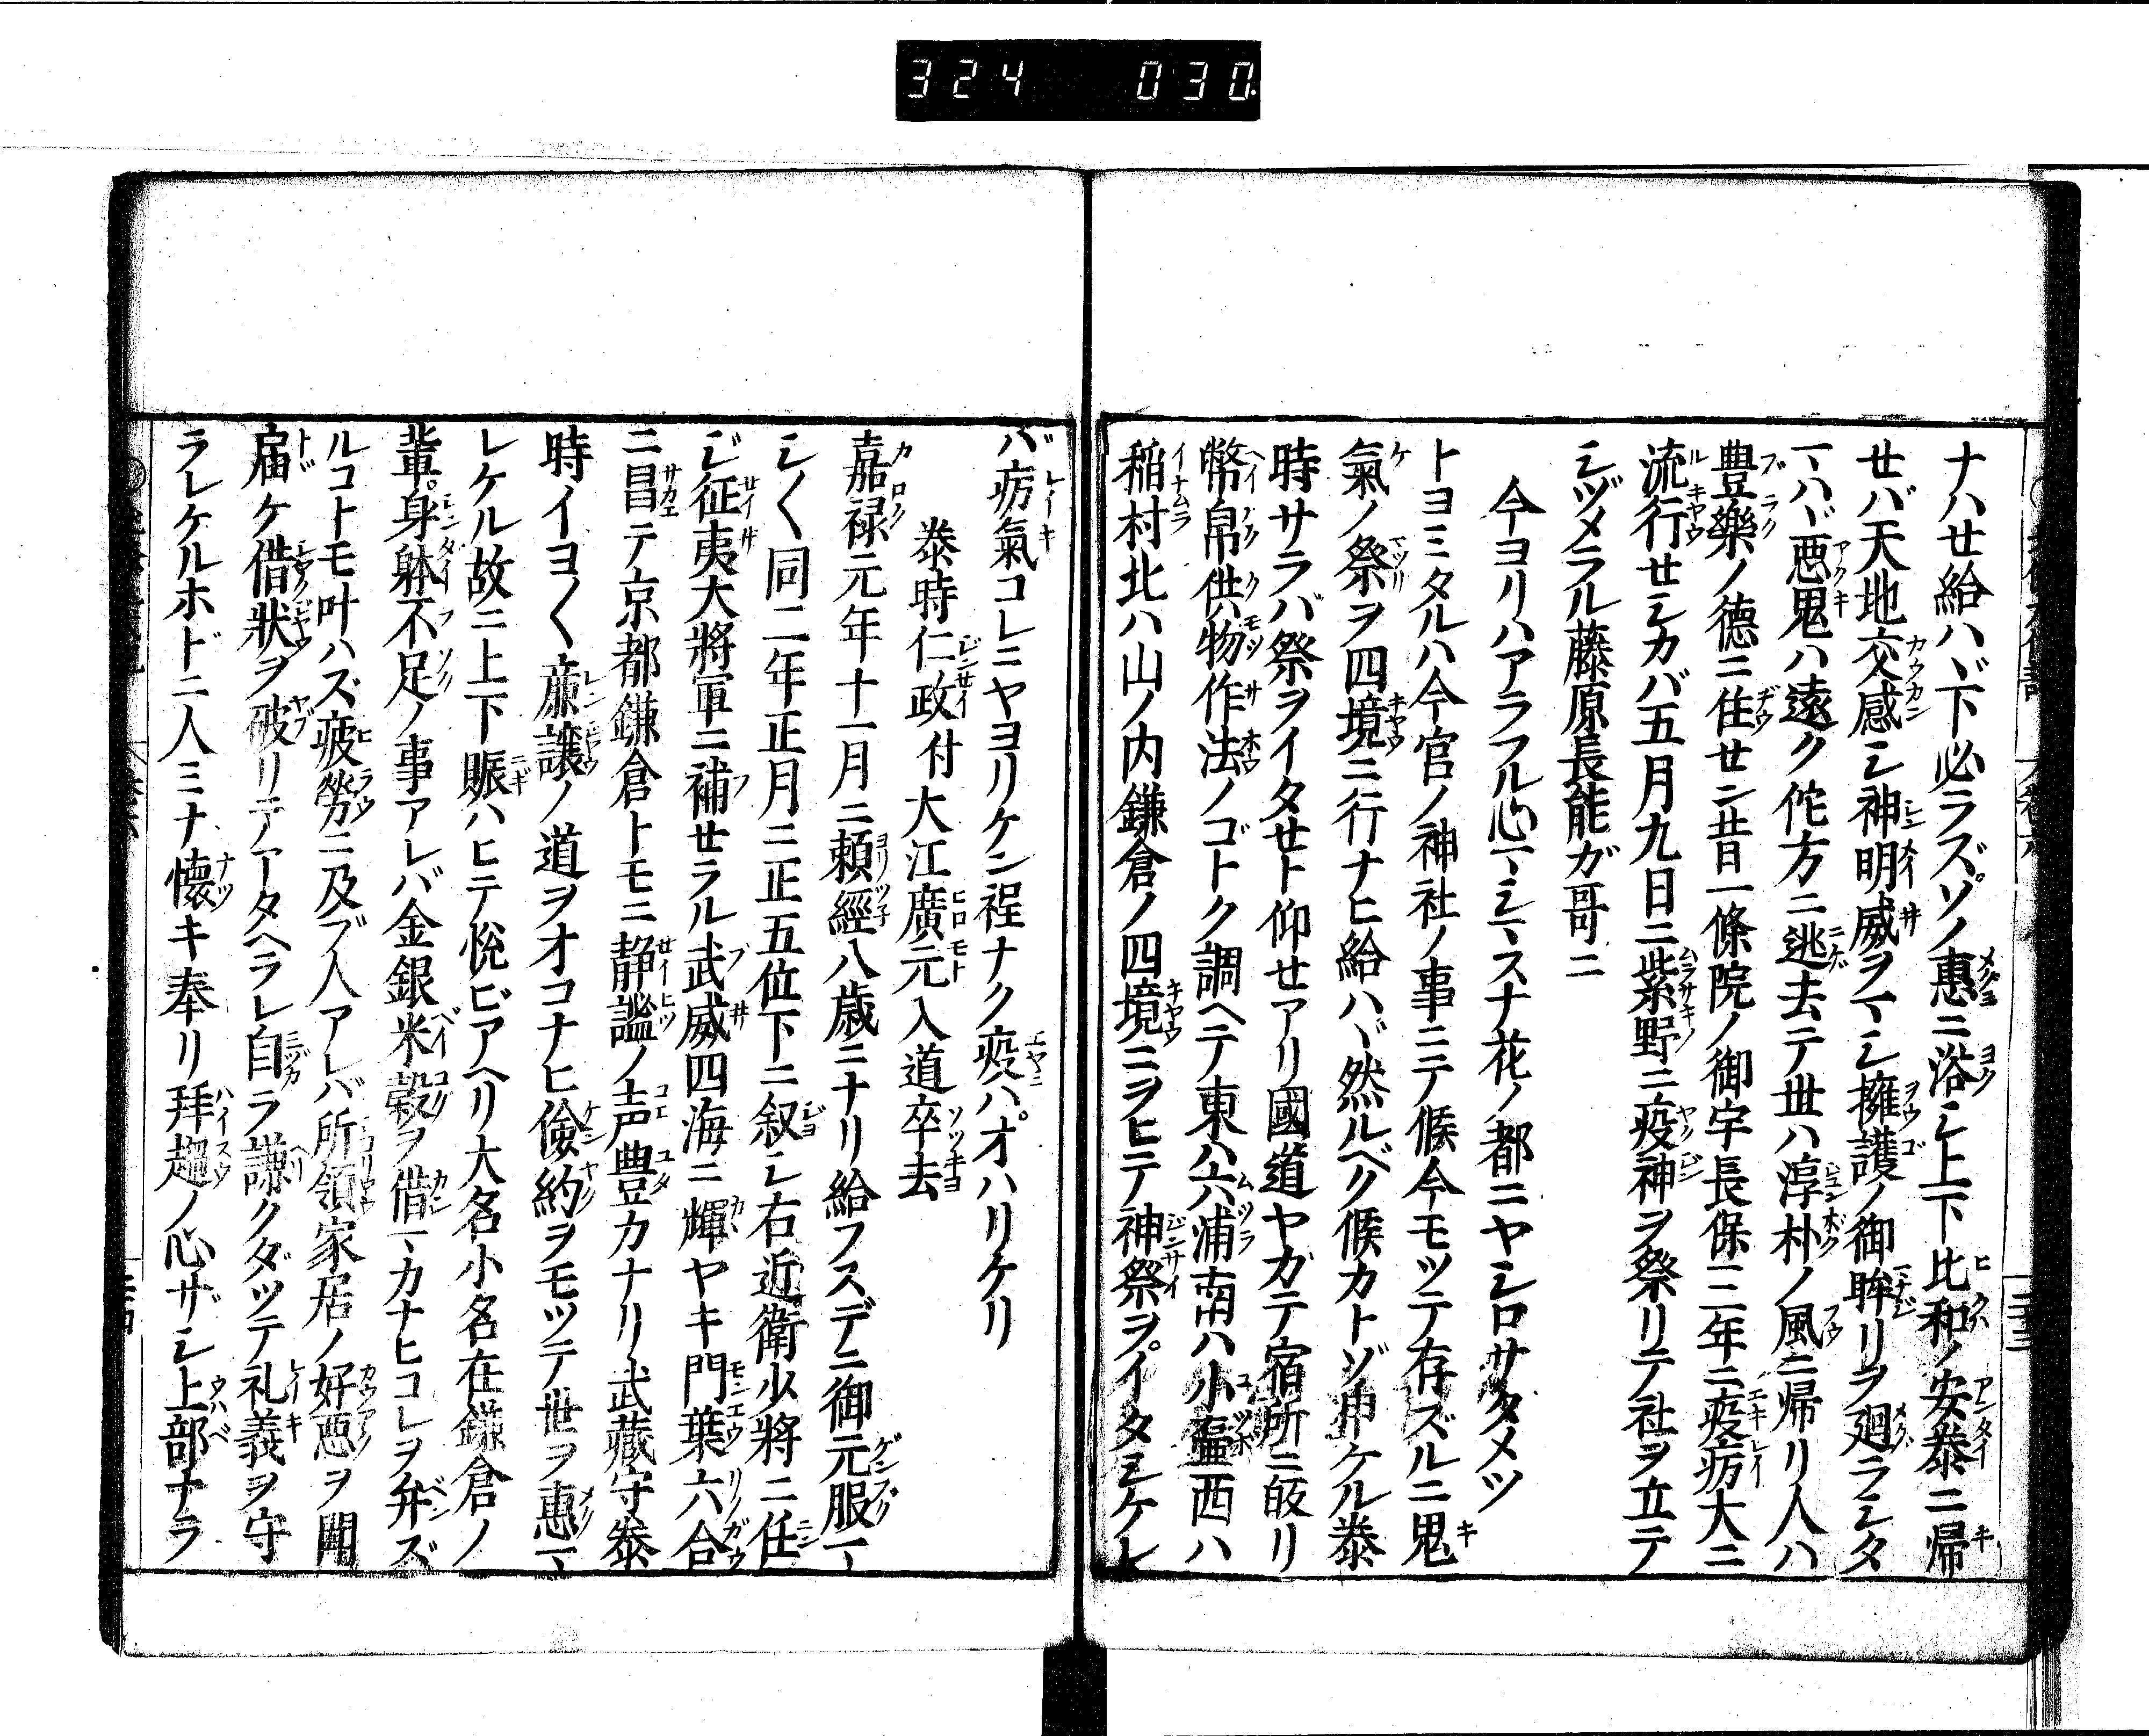 324 030
ナハせ給ハヾ下必ラズソノ惠ニ浴シ上下比和ノ安泰ニ帰
せバ天地交感シ神明威ヲマシ擁護ノ御眸リヲ廻ラシタ
マハヾ悪鬼ハ遠ク佗方ニ逃去テ世ハ淳朴ノ風ニ帰リ人ハ
豊樂ノ德ニ住せン昔日一條院ノ御宇長保三年ニ疫疠大ニ
流行せシカバ五月九日ニ紫野ニ疫神ヲ祭リテ社ヲ立テ
シヅメラル藤原長能ガ哥ニ
今ヨリハアラフル心マシマスナ花ノ都ニヤシロサタメツ
トヨミタルハ今官ノ神社ノ事ニテ候今モツテ存ズルニ鬼
氣ノ祭ヲ四境ニ行ナヒ給ハヾ然ルベク候カトゾ申ケル泰
時サラバ祭ヲイタせト仰せアリ國道ヤガテ宿所ニ皈リ
幣帛供物作法ノゴトク調ヘテ東ハ六浦南ハ小壷西ハ
稲村北ハ山ノ内鎌倉ノ四境ニヲヒテ神祭ヲイタシケレ
バ疠氣コレニヤヨリケン程ナク疫ハオハリケリ
泰時仁政付大江廣元入道卒去
嘉禄元年十一月ニ頼經八歳ニナリ給フスデニ御元服マ
シ〱同二年正月ニ正五位下ニ叙シ右近衛少將ニ任
ジ征夷大將軍ニ補せラル武威四海ニ輝ヤキ門葉六合
ニ昌テ京都鎌倉トモニ静謐ノ声豊カナリ武藏守泰
時イヨ〱廉讓ノ道ヲオコナヒ儉約ヲモツテ世ヲ惠マ
レケル故ニ上下賑ハヒテ悦ビアヘリ大名小名在鎌倉ノ
輩身躰不足ノ事アレバ金銀米穀ヲ借マカナヒコレヲ弁ズ
ルコトモ叶ハズ疲勞ニ及ブ人アレバ所領家居ノ好悪ヲ聞
届ケ借狀ヲ破リテアタヘラレ自ラ謙クダツテ礼義ヲ守
ラレケルホドニ人ミナ懐キ奉リ拜趨ノ心ザシ上部ナラ